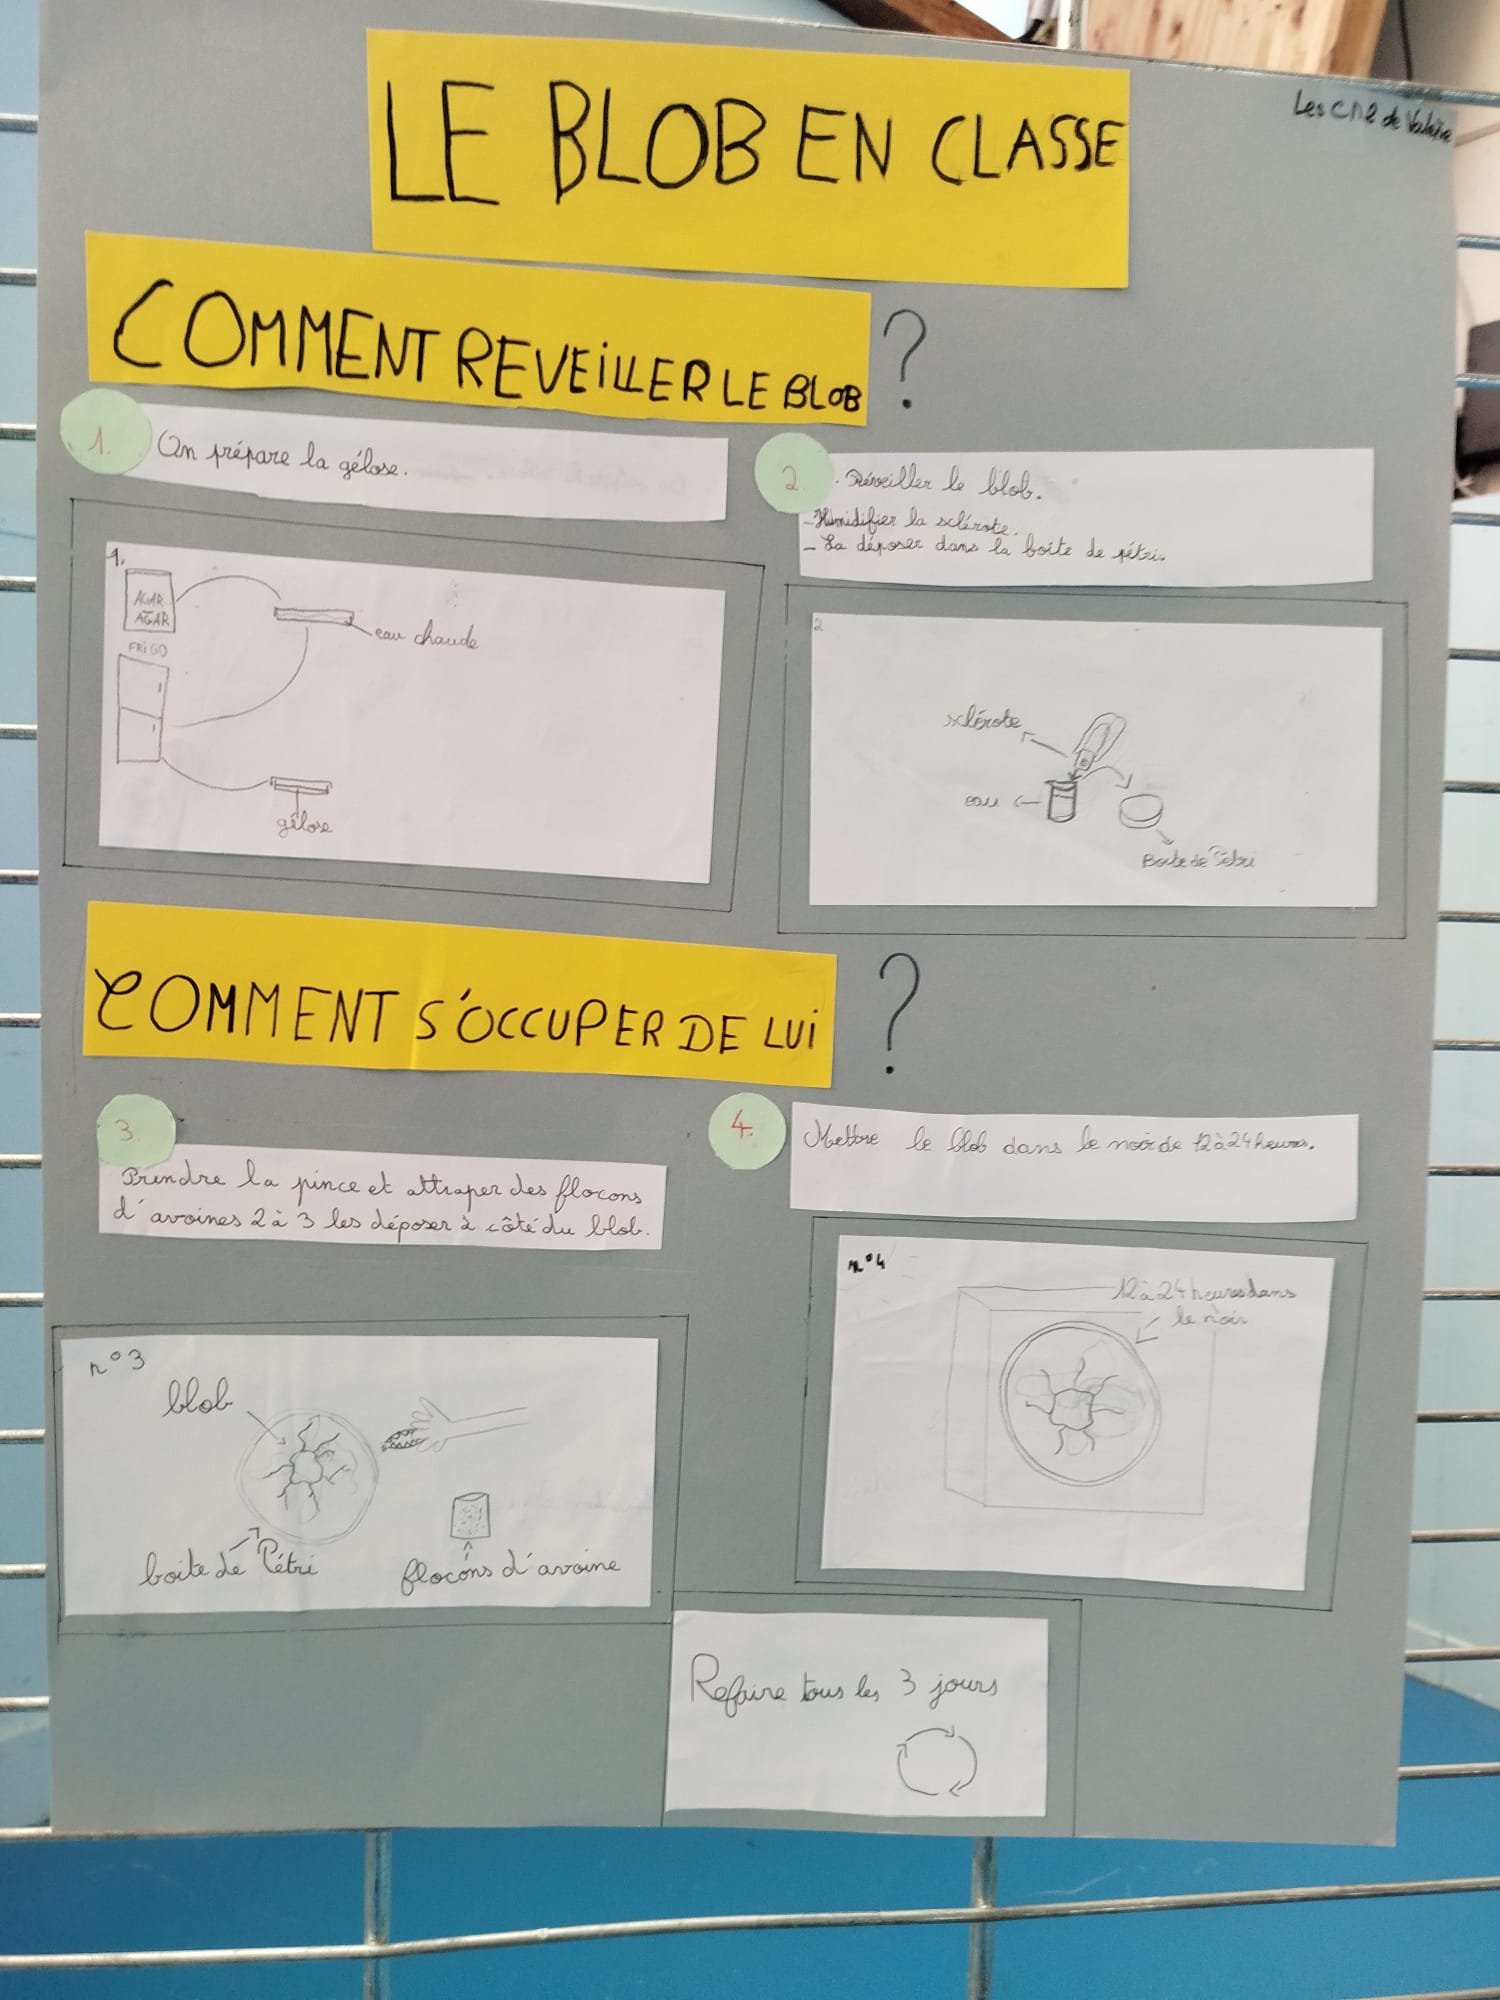 LE BLOB EN CLASSE
Les CM2 de Valérie
COMMENT REVEILLER LE BLOB ?
1.
On prépare la gélose.
1.
AGAR
AGAR
eau chaude
FRIGO
gélose
2.
Réveiller le blob.
- Humidifier la sclérote.
- La déposer dans la boîte de pétri.
2
sclérote
eau
Boite de Pétri
COMMENT S'OCCUPER DE LUI ?
3.
Prendre la pince et attraper des flocons
d'avoines 2 à 3 les déposer à côté du blob.
n°3
blob
boite de Pétri
flocons d'avoine
4.
Mettre le blob dans le noir de 12 à 24 heures.
n°4
12 à 24 heures dans
le noir
Refaire tous les 3 jours